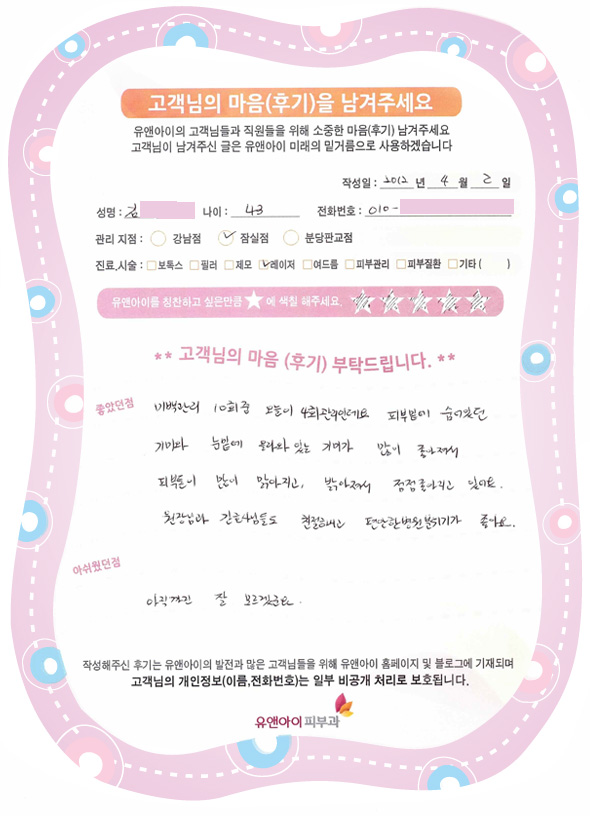 고객님의 마음(후기)을 남겨주세요
유앤아이의 고객님들과 직원들을 위해 소중한 마음(후기) 남겨주세요
고객님이 남겨주신 글은 유앤아이 미래의 밑거름으로 사용하겠습니다
작성일 : 2012 년 4 월 2 일
성명 : 김 나이 : 43 전화번호 : 010-
관리 지점 : 강남점 잠실점 분당판교점
진료,시술 : 보톡스 필러 제모 레이저 여드름 피부관리 피부질환 기타 ( )
유앤아이를 칭찬하고 싶은만큼 ★ 에 색칠 해주세요.
** 고객님의 마음 (후기) 부탁드립니다. **
좋았던점
미백관리 10회중 오늘이 4회관리인데요 피부밑에 숨어있던
기미와 눈밑에 올라와 있는 기미가 많이 좋아져서
피부톤이 많이 맑아지고, 밝아져서 점점좋아지고 있어요.
원장님과 간호사님들도 친절하시고 편안한병원분위기가 좋아요.
아쉬웠던점
아직까진 잘 모르겠군요.
작성해주신 후기는 유앤아이의 발전과 많은 고객님들을 위해 유앤아이 홈페이지 및 블로그에 기재되며
고객님의 개인정보(이름,전화번호)는 일부 비공개 처리로 보호됩니다.
유앤아이피부과